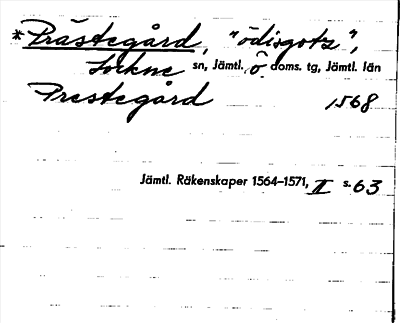 *Prästegård, "ödisgotz",
Lockne sn, Jämtl. Ö doms. tg, Jämtl. län
Prestegård 1568
Jämtl. Räkenskaper 1564–1571, II s. 63